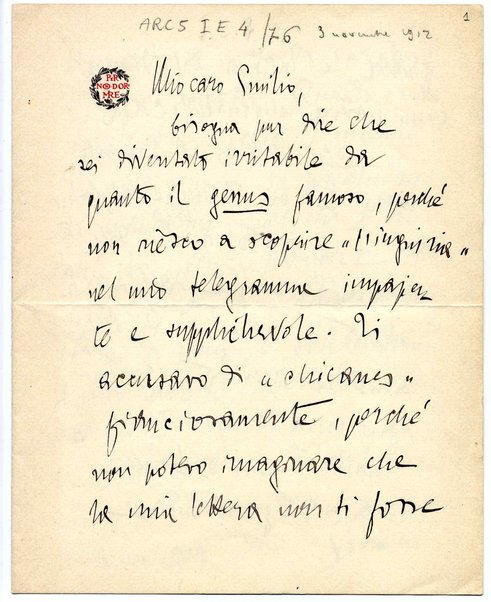 ARC5 I E 4/76 3 novembre 1912
1
PER
NON DOR
MIRE
Mio caro Emilio,
bisogna pur dire che
sei diventato irritabile da
quanto il genus famoso, perché
non riesco a scoprire "l'ingiuria"
nel mio telegramma impazien
te e supplichevole. Ti
accusavo di "chicanes"
, perché
non potevo imaginare che
la mia lettera non ti fosse